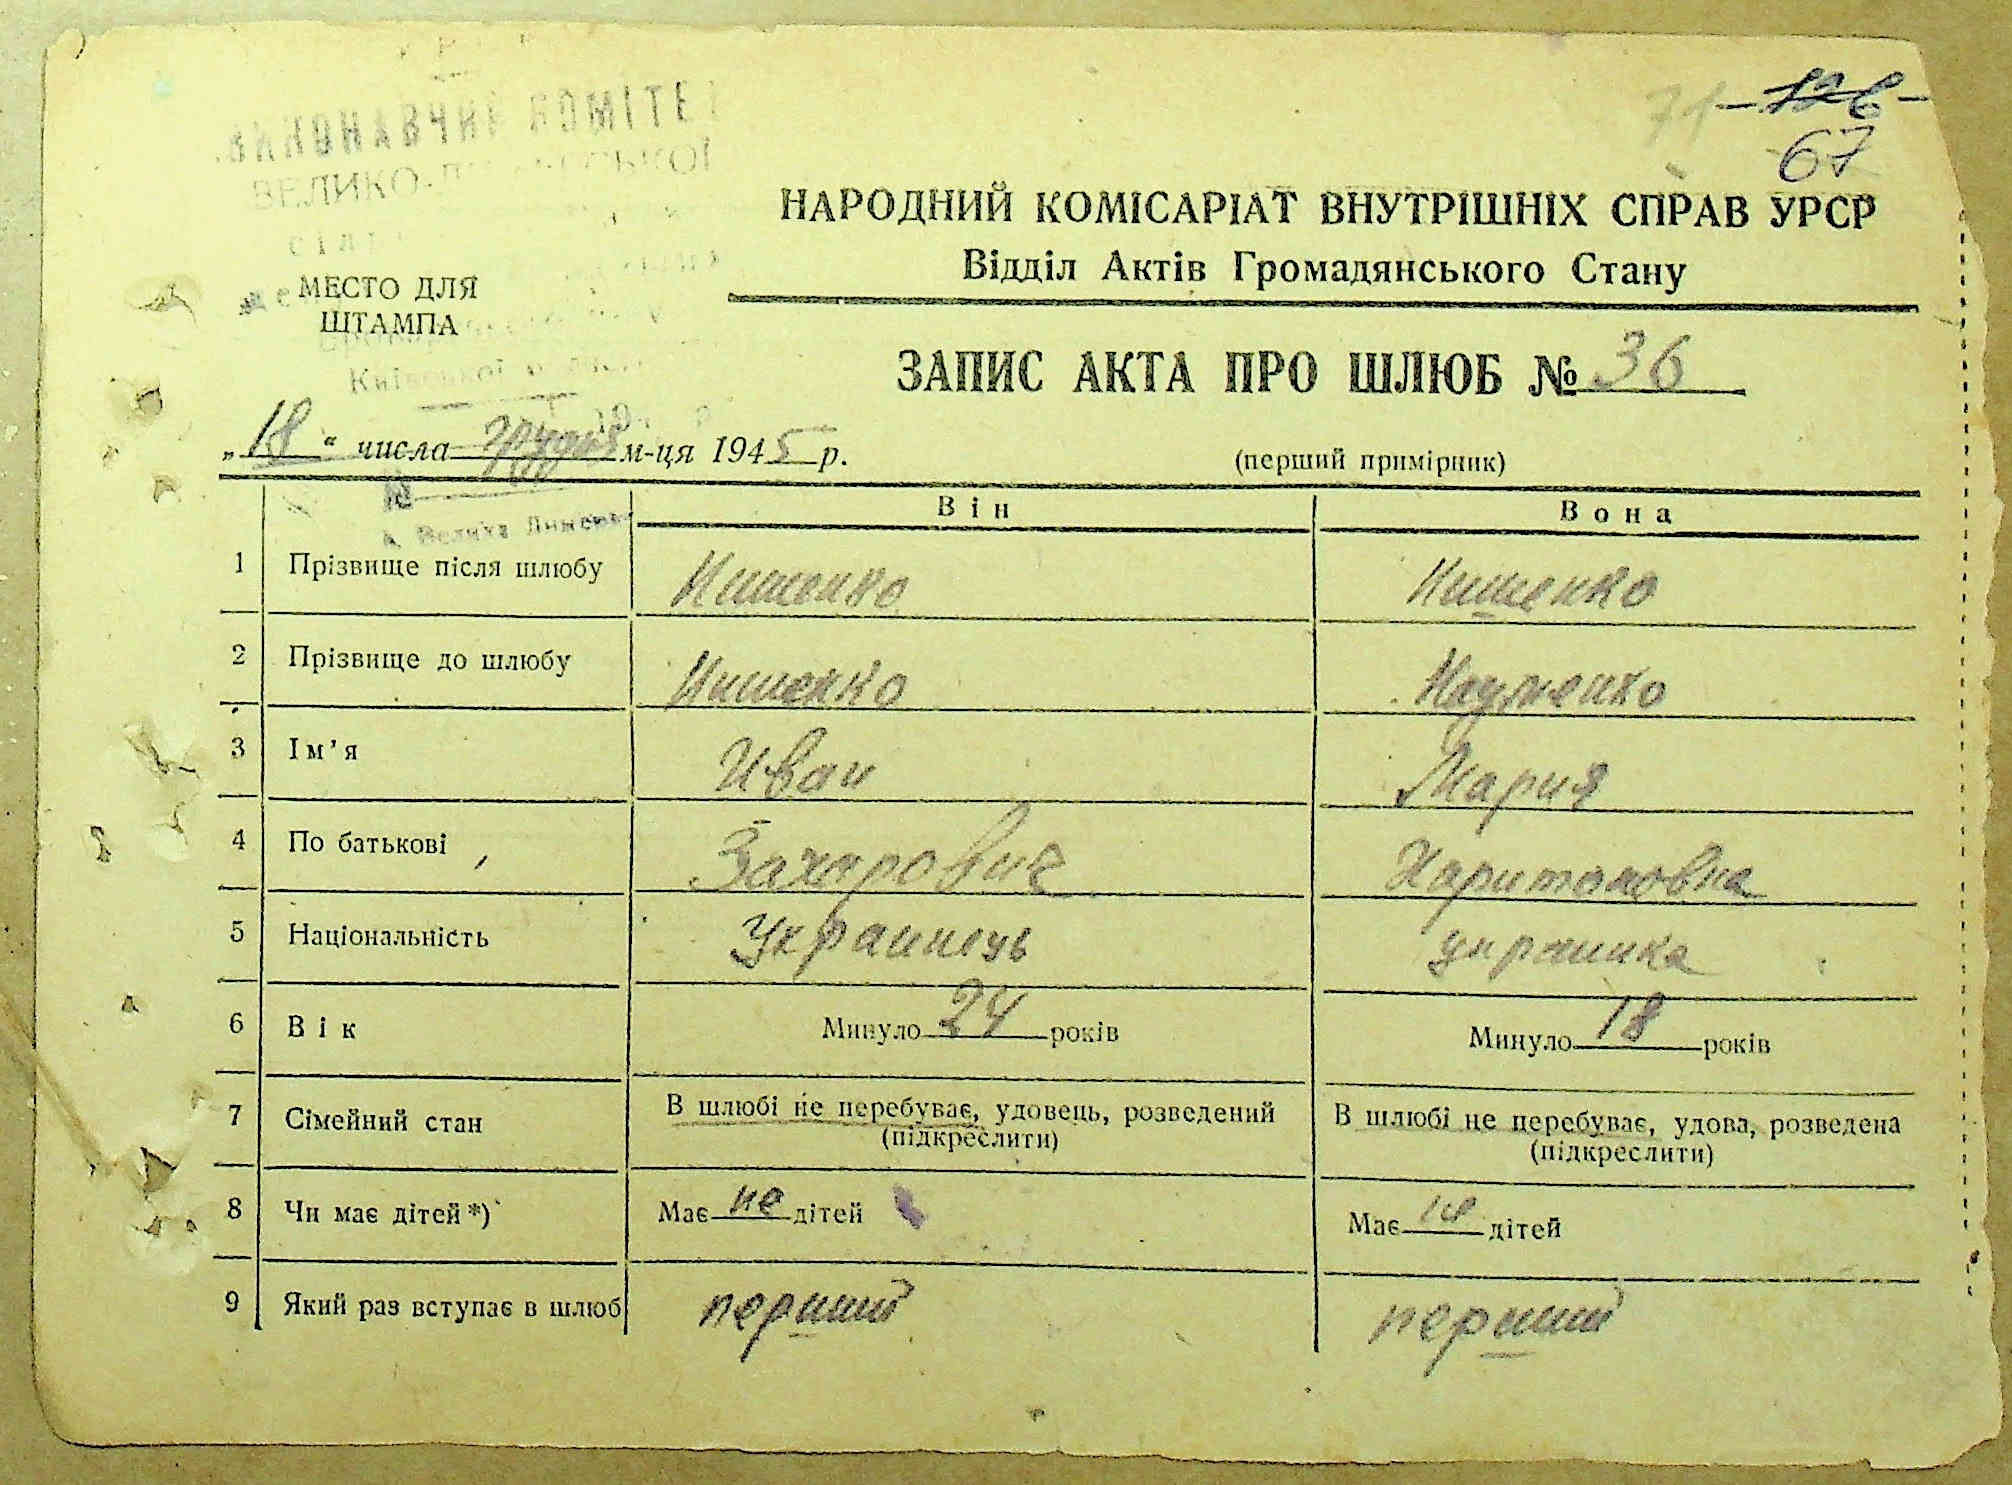 ВИКОНАВЧИЙ КОМІТЕТ
71 - 126 -
67
ВЕЛИКО-
НАРОДНИЙ КОМІСАРІАТ ВНУТРІШНІХ СПРАВ УРСР
Відділ Актів Громадянського Стану
МЕСТО ДЛЯ
ШТАМПА
Київської
ЗАПИС АКТА ПРО ШЛЮБ № 36
„18“ числа грудня м-ця 1945 р.
(перший примірник)
Він Вона
с. Велика
1 Прізвище після шлюбу Кишенко Кишенко
2 Прізвище до шлюбу Кишенко Науменко
3 Ім’я Иван Мария
4 По батькові Захарович Харитоновна
5 Національність Украинець украинка
6 Вік Минуло 24 років Минуло 18 років
7 Сімейний стан В шлюбі не перебуває, удовець, розведений В шлюбі не перебуває, удова, розведена
(підкреслити) (підкреслити)
8 Чи має дітей*) Має не дітей Має не дітей
9 Який раз вступає в шлюб перший перший